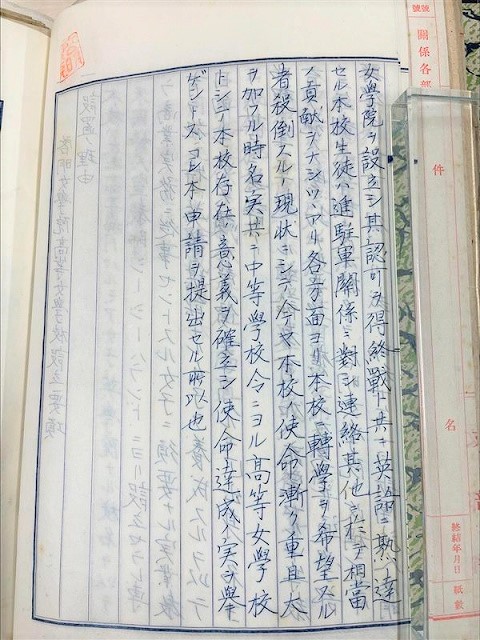 號號
關係各部
件
名
終結年月日
紙數
女學院ヲ設立シ其認可ヲ得終戰ト共ニ英語ニ熟達
セル本校生徒ハ進駐軍關係ニ對シ連絡其他ニ於テ相當
ノ貢献ヲナシツヽアリ各方面ヨリ本校ニ轉學ヲ希望スル
者殺到スルノ現状ニシテ今ヤ本校ノ使命漸ク重且大
ヲ加フル時名実共ニ中等學校令ニヨル高等女學校
トシテ本校存在ノ意義ヲ確立シ使命達成ノ実ヲ擧
ゲントス コレ本申請ヲ提出セル所以也